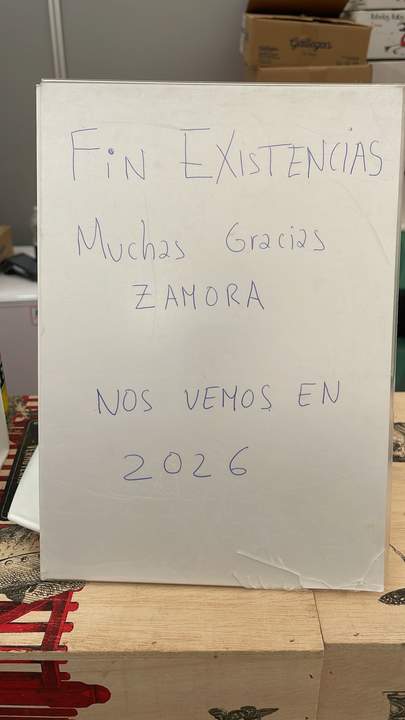 Gallegas
FiN EXISTENCIAS
Muchas Gracias
ZAMORA
NOS VEMOS EN
2026